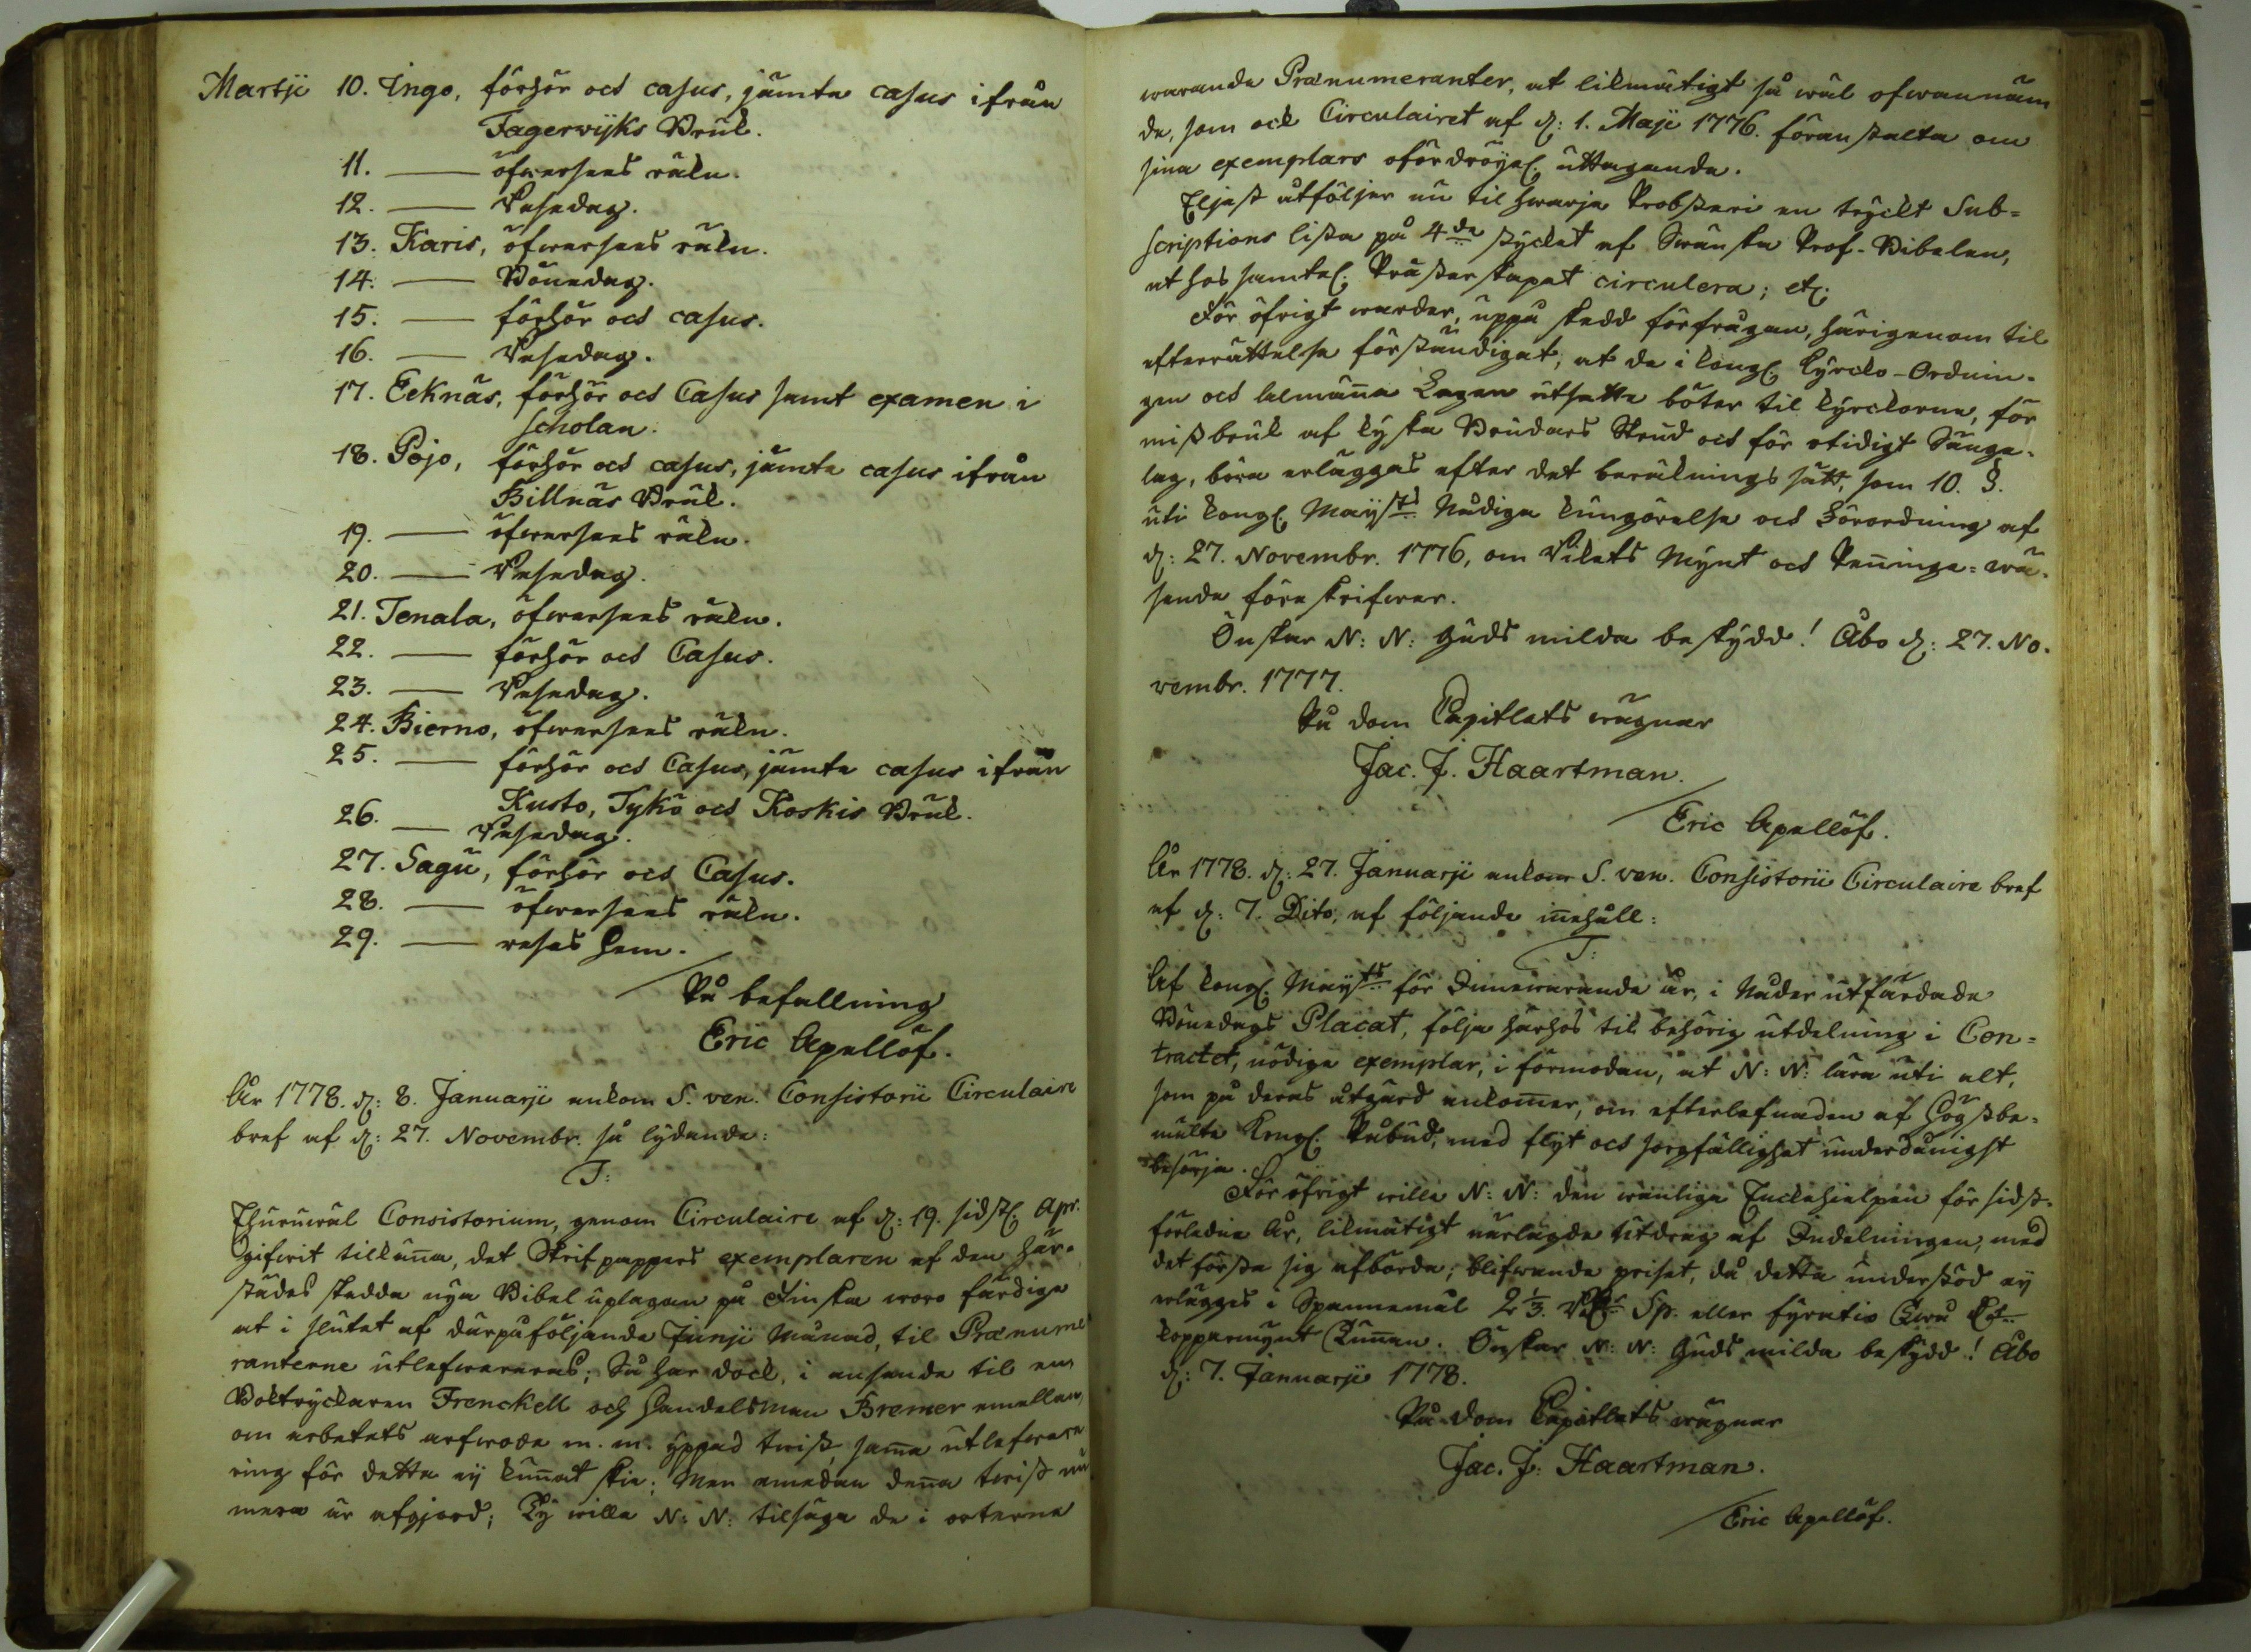 Martji 10. Ingo, förhör och casus, jämte casus ifrån
Fagerwijks Bruk.
11. — öfwersees räkn.
12. — Resedag.
13. Karis, öfwersees räkn.
14. — Bönedag.
15. — förhör och casus.
16. — Resedag.
17. Ecknäs, förhör och Casus samt examen i
scholan.
18. Pojo, förhör och casus, jämte casus ifrån
Billnäs Bruk.
19. — öfwersees räkn.
20. — Resedag.
21. Tenala, öfwersees räkn.
22. — förhör och Casus.
23. — Resedag.
24. Bierno, öfwersees räkn.
25. — förhör och Casus, jämte casus ifrån
Kusto, Tykö och Koskis Bruk.
26. — Resedag.
27. Sagu, förhör och Casus.
28. — öfwersees räkn.
29. — reses hem.
På befallning
Eric Apellöf.
År 1778. d: 8. Januarji ankom S. ven. Consistorii Circulaire
bref af d: 27. Novembr. så lydande:
T:
Ehuruwäl Consistorium, genom Circulaire af d: 19. sidstl. Apr.
gifwit tillkänna, det Skrifpappers exemplaren af den här-
städes skedda nya Bibel uplagan på Finska woro färdige
at i slutet af därpåföljande Junji Månad, til Prænume
ranterne utlefwereras; Så har dock, i anseende til en
Boktryckaren Frenckell och Handelsman Bremer emellan,
om arbetets arfwode m. m. yppad twist, samma utlefwere
ring för detta ej kunnat skie; Men emedan denna twist nu
mera är afgjord; Ty wille N: N: tilsäga de i orterne
warande Prænumeranter, at likmätigt så wäl ofwannäm
de, som ock Circulairet af d: 1. Maji 1776. föranstalta om
sina exemplars ofördröjel. uttagande.
Eljest åtföljer nu til hwarje Probsteri en tryckt Sub=
scriptions lista på 4de stycket af Swänska Prof-Bibelen,
at hos samtel. Prästerskapet circulera; etc.
För öfrigt warder, uppå skedd förfrågan, härigenom til
efterrättelse förständigat, at de i Kongl. Kyrcko-Ordnin-
gen och Almänna Lagen utsatte böter til Kyrckorne, för
missbruk af Kyska Brudars Skrud och för otidigt Sänge-
lag, böra erläggas efter det beräknings sätt, som 10. §.
uti Kongl. Mayts Nådiga Kungörelse och Förordning af
d: 27. Novembr. 1776, om Rikets Mynt och Penninge=wä-
sende föreskrifwer.
Önskar N: N: Guds milda beskydd! Åbo d: 27. No-
vembr. 1777.
På Dom Capitlets wägnar
Jac. J. Haartman.
Eric Apellöf.
År 1778. d: 27. Januarji ankom S. ven. Consistorii Circulaire bref
af d: 7. Dito, af följande innehåll:
T:
Af Kongl. Mayts för innewarande år, i Nåder utfärdade
Bönedags Placat, följa härhos til behörig utdelning i Con=
tractet, nödige exemplar, i förmodan, at N: N: lära uti alt,
som på deras åtgärd ankommer, om efterlefnaden af Högstbe-
mälte Kongl. Påbud, med flijt och sorgfällighet underdånigst
besörja.
För öfrigt wille N: N: den wanliga Enckehielpen för sidst-
förledne År, likmätigt närlagde Utdrag af Indelningen, med
det första sig afbörda; blifwande priset, då detta understöd ej
erlägges i Spannemål 2 1/3. Rdr Sp. eller fyratio twå Dr
kopparmynt Tunnan. Önskar N: N: Guds milda beskydd! Åbo
d: 7. Januarji 1778.
På Dom Capitlets wägnar
Jac. J: Haartman.
Eric Apellöf.